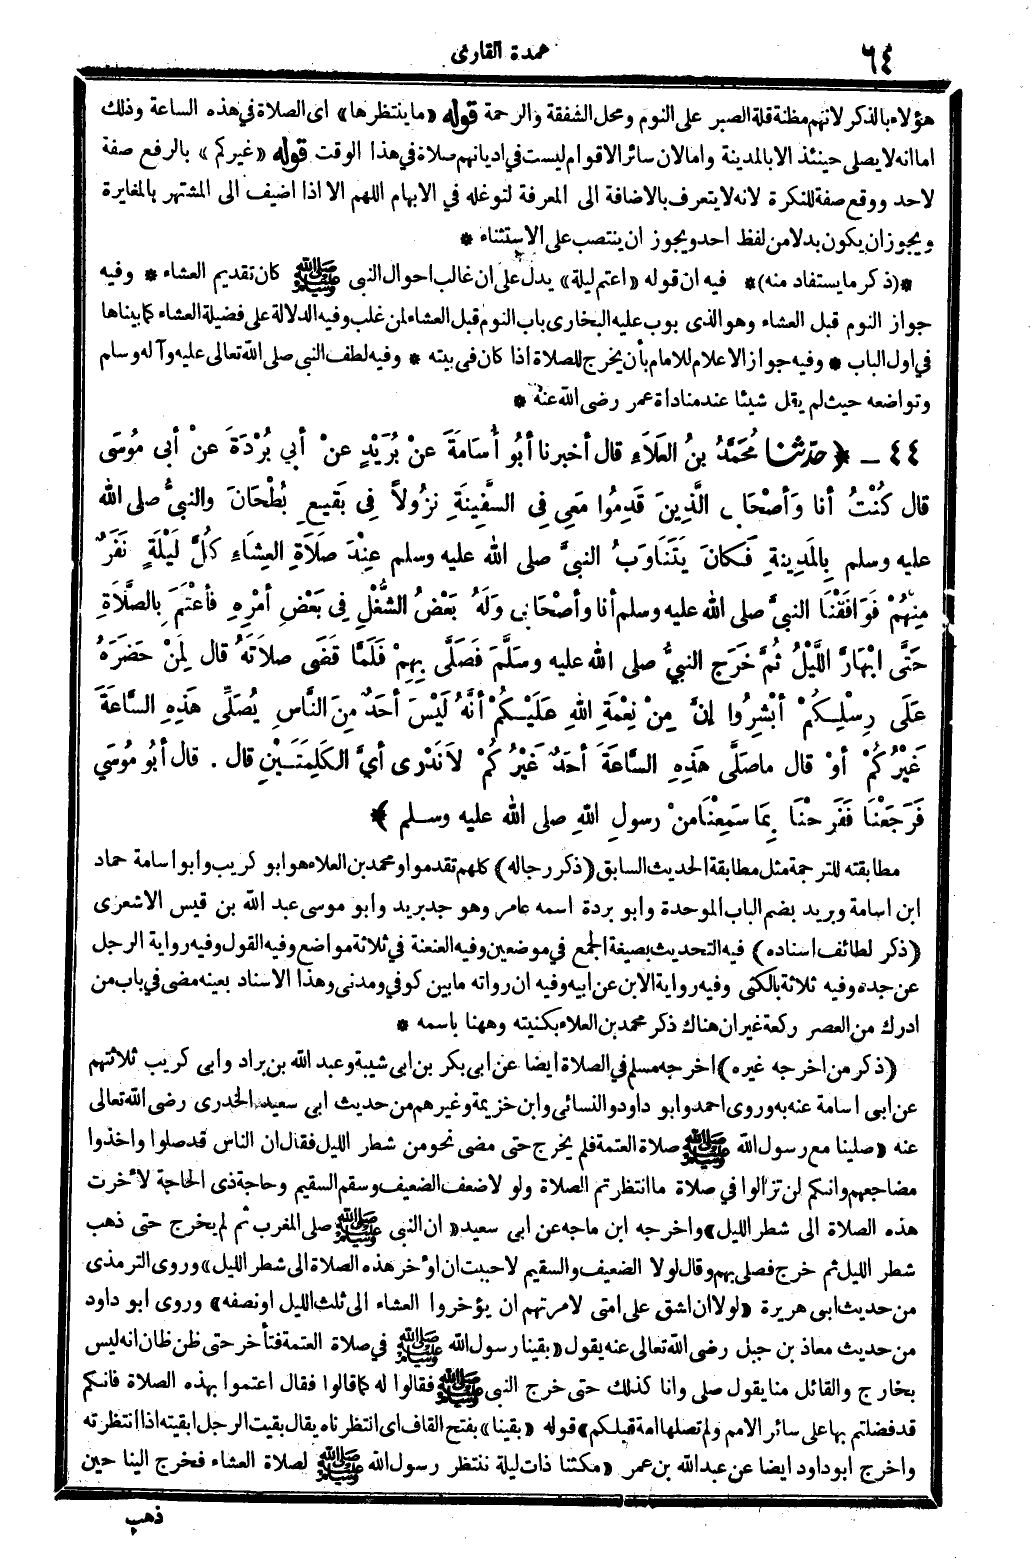 ٦٤
عمدة القارئ
هؤلاء بالذكر لانهم مظنة قلة الصبر على النوم ومحل الشفقة والرحمة قوله «ماينتظرها» اى الصلاة فى هذه الساعة وذلك
اما انه لا يصلى حينئذ الا بالمدينة واما لان سائر الاقوام ليست فى اديانهم صلاة فى هذا الوقت قوله «غيركم» بالرفع صفة
لاحد ووقع صفة للنكرة لانه لا يتعرف بالاضافة الى المعرفة لتوغله في الابهام اللهم الا اذا اضيف الى المشتهر بالمغايرة
ويجوز ان يكون بدلا من لفظ احد ويجوز ان ينتصب على الاستثناء *
*(ذكر ما يستفاد منه)* فيه ان قوله «اعتم ليلة» يدل على ان غالب احوال النبى ﷺ كان تقديم العشاء * وفيه
جواز النوم قبل العشاء وهو الذى بوب عليه البخارى باب النوم قبل العشاء لمن غلب وفيه الدلالة على فضيلة العشاء كما بيناها
فى اول الباب * وفيه جواز الاعلام للامام بأن يخرج للصلاة اذا كان فى بيته * وفيه لطف النبى صلى الله تعالى عليه وآله وسلم
وتواضعه حيث لم يقل شيئا عند مناداة عمر رضى الله عنه *
٤٤ - ﴿حدّثنا مُحَمَّدُ بنُ العَلَاءِ قال أخبرنا أبُو أُسَامَةَ عنْ بُرَيْدٍ عنْ أبي بُرْدَةَ عنْ أبى مُوسَى
قال كُنْتُ أنا وَأصْحَابى الَّذِينَ قَدِمُوا مَعِى فِى السَّفِينَةِ نزُولاً فِى بَقيعِ بُطْحَانَ والنبىُّ صلى الله
عليه وسلم بِالمَدِينةِ فَكانَ يَتَنَاوَبُ النبىَّ صلى الله عليه وسلم عِنْدَ صَلَاةِ العِشَاءِ كُلَّ لَيْلَةٍ نَفَرٌ
مِنْهُمْ فَوَافَقْنَا النبىَّ صلى الله عليه وسلم أنا وأصْحَابى وَلَهُ بَعْضُ الشُّغْلِ فِى بَعْضِ أمْرِهِ فأعْتَمَ بِالصَّلَاةِ
حَتَّى ابْهَارَّ اللَّيْلُ ثُمَّ خَرَجَ النبيُّ صلى الله عليه وسَلَّمَ فَصَلَّى بِهِمْ فَلَمَّا قَضَى صلاتَهُ قال لِمَنْ حَضَرَهُ
عَلَى رِسْلِكُمْ أبْشِرُوا إنَّ مِنْ نِعْمَةِ اللهِ عَلَيْكُمْ أنَّهُ لَيْسَ أحَدٌ مِنَ النَّاسِ يُصَلِّى هَذِهِ السَّاعَةَ
غَيْرُكُمْ أوْ قال ماصَلَّى هَذِهِ السَّاعَةَ أحَدٌ غَيْرُكُمْ لاَ نَدْرِى أىَّ الكَلِمَتَيْنِ قال . قال أبُو مُوسَي
فَرَجَعْنَا فَفَرِحْنَا بِمَا سَمِعْنَا مِنْ رسولِ اللهِ صلى الله عليه وسلم﴾
مطابقته للترجمة مثل مطابقة الحديث السابق (ذكر رجاله) كلهم تقدموا ومحمد بن العلاء هو ابو كريب وابو اسامة حماد
ابن اسامة وبريد بضم الباء الموحدة وابو بردة اسمه عامر وهو جد بريد وابو موسى عبد الله بن قيس الاشعرى
(ذكر لطائف اسناده) فيه التحديث بصيغة الجمع في موضعين وفيه العنعنة في ثلاثة مواضع وفيه القول وفيه رواية الرجل
عن جده وفيه ثلاثة بالكنى وفيه رواية الابن عن ابيه وفيه ان رواته ما بين كوفي ومدنى وهذا الاسناد بعينه مضى في باب من
ادرك من العصر ركعة غير ان هناك ذكر محمد بن العلاء بكنيته وههنا باسمه *
(ذكر من اخرجه غيره) اخرجه مسلم فى الصلاة ايضا عن ابى بكر بن ابى شيبة وعبد الله بن براد وابى كريب ثلاثتهم
عن ابى اسامة عنه به وروى احمد وابو داود والنسائى وابن خزيمة وغيرهم من حديث ابى سعيد الخدرى رضى الله تعالى
عنه «صلينا مع رسول الله ﷺ صلاة العتمة فلم يخرج حتى مضى نحو من شطر الليل فقال ان الناس قد صلوا واخذوا
مضاجعهم وانكم لن تزالوا في صلاة ما انتظرتم الصلاة ولو لا ضعف الضعيف وسقم السقيم وحاجة ذى الحاجة لأخرت
هذه الصلاة الى شطر الليل» واخرجه ابن ماجه عن ابى سعيد «ان النبى ﷺ صلى المغرب ثم لم يخرج حتى ذهب
شطر الليل ثم خرج فصلى بهم وقال لولا الضعيف والسقيم لاحببت ان اؤخر هذه الصلاة الى شطر الليل» وروى الترمذى
من حديث ابى هريرة «لولا ان اشق على امتى لامرتهم ان يؤخروا العشاء الى ثلث الليل او نصفه» وروى ابو داود
من حديث معاذ بن جبل رضى الله تعالى عنه يقول «بقينا رسول الله ﷺ في صلاة العتمة فتأخر حتى ظن ظان انه ليس
بخارج والقائل منا يقول صلى وانا كذلك حتى خرج النبى ﷺ فقالوا له كما قالوا فقال اعتموا بهذه الصلاة فانكم
قد فضلتم بها على سائر الامم ولم تصلها امة قبلكم» قوله «بقينا» بفتح القاف اى انتظرناه يقال بقيت الرجل ابقيته اذا انتظرته
واخرج ابوداود ايضا عن عبد الله بن عمر «مكثنا ذات ليلة ننتظر رسول الله ﷺ لصلاة العشاء فخرج الينا حين
ذهب